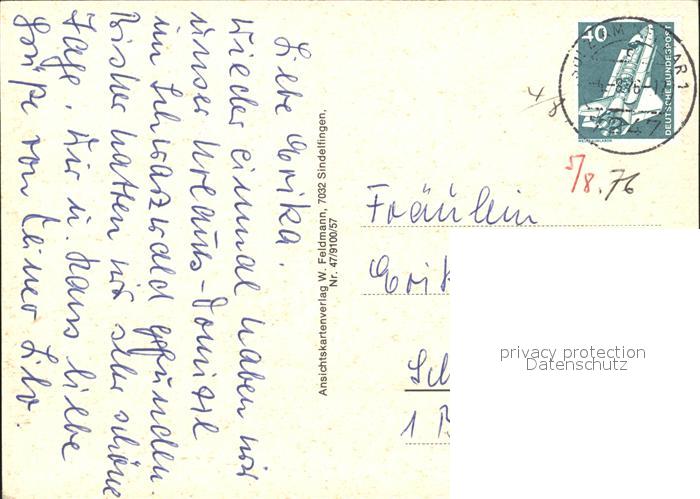 Liebe Erika.
Wieder einmal haben wir
unser Urlaubs-Domizil
im Schwarzwald gefunden.
Bisher hatten wir sehr schöne
Tage. Dir u. Hans liebe
Grüße von Deiner Lilo.
Ansichtskartenverlag W. Feldmann, 7032 Sindelfingen,
Nr. 47/9100/57
40
DEUTSCHE BUNDESPOST
4/8
5/8.76
Fräulein
Erik
Sch
1 B
privacy protection
Datenschutz